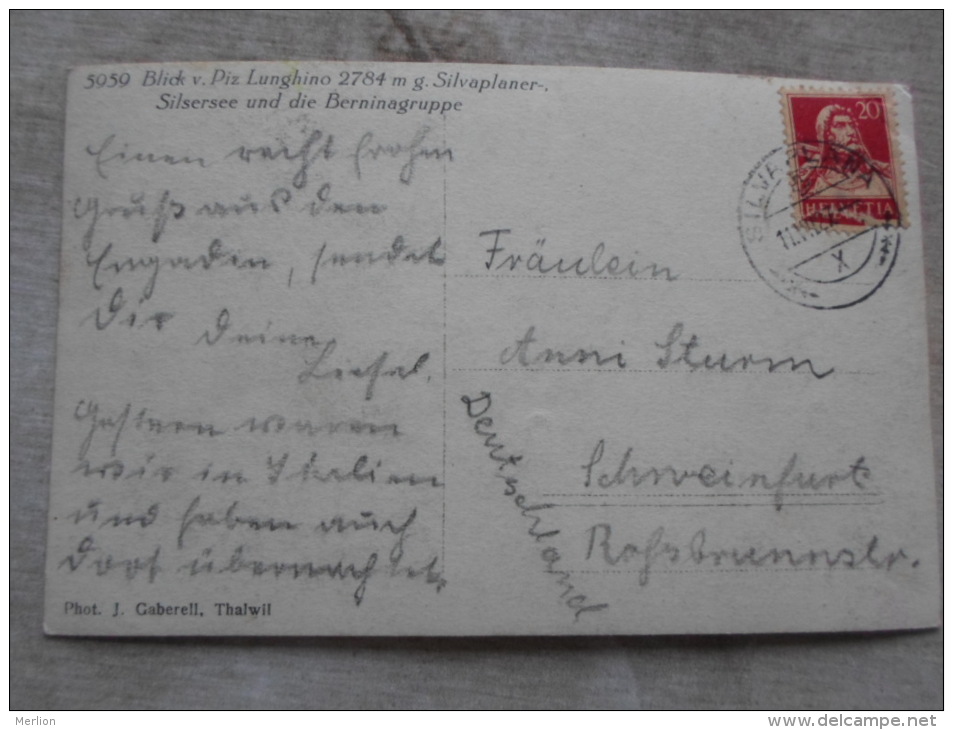 5959 Blick v. Piz Lunghino 2784 m g. Silvaplaner-,
Silsersee und die Berninagruppe
Einen recht frohen
Gruß aus dem
Engadin, sendet
Dir
Deine
Liesel.
Gestern waren
wir in Italien
und haben auch
dort übernachtet.
Phot. J. Gaberell, Thalwil
20
HELVETIA
SILVAPLANA
X
Fräulein
Anni Sturm
Schweinfurt
Roßbrunnstr.
Deutschland
Merlion
http://www.delcampe.net